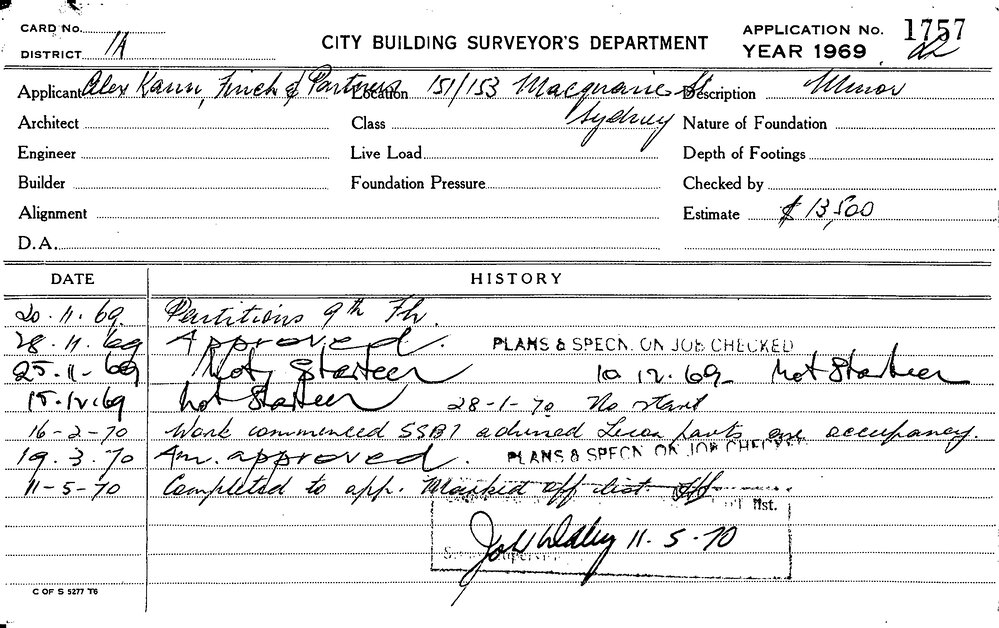 CARD No.
DISTRICT 1A
CITY BUILDING SURVEYOR'S DEPARTMENT
APPLICATION No. 1757
YEAR 1969
Applicant Alex Kann, Finch & Partners Location 151/153 Macquarie St Sydney Description Minor
Architect Class Nature of Foundation
Engineer Live Load Depth of Footings
Builder Foundation Pressure Checked by
Alignment Estimate $13,500
D.A.
DATE HISTORY
20.11.69 Partitions 9th Flr.
28.11.69 Approved. PLANS & SPECN. ON JOB CHECKED
25-11-69 Not Starteer 10.12.69 Not Starteer
15.12.69 Not Starteer 28-1-70 No start
16-2-70 Work commenced accupancy.
19.3.70 Am. approved. PLANS & SPECN ON JOB CHECKED
11-5-70 Completed to app. Marked off list.
list.
11-5-70
C OF S 5277 T6